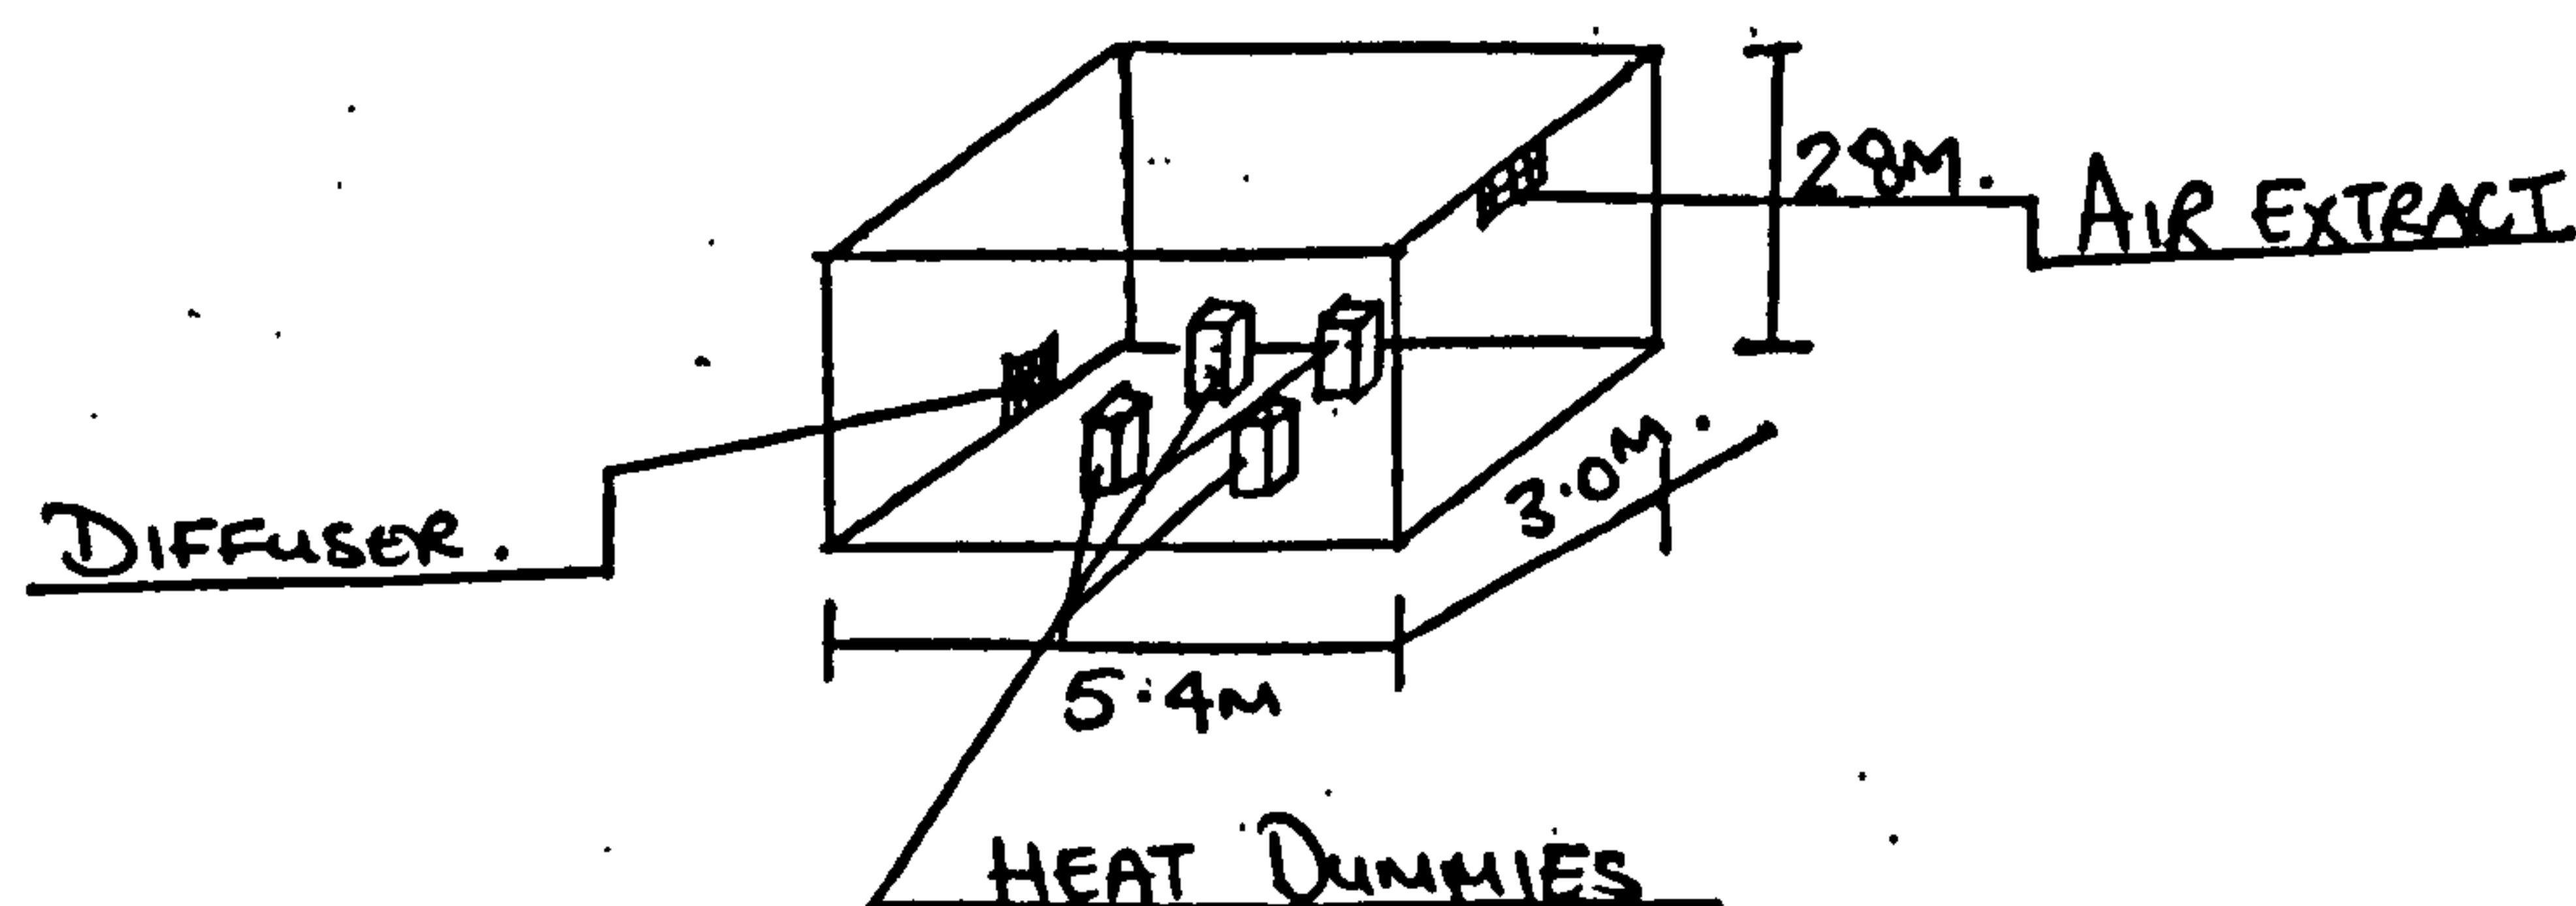 28M.
AIR EXTRACT
3.0M.
DIFFUSER.
5.4M
HEAT DUMMIES